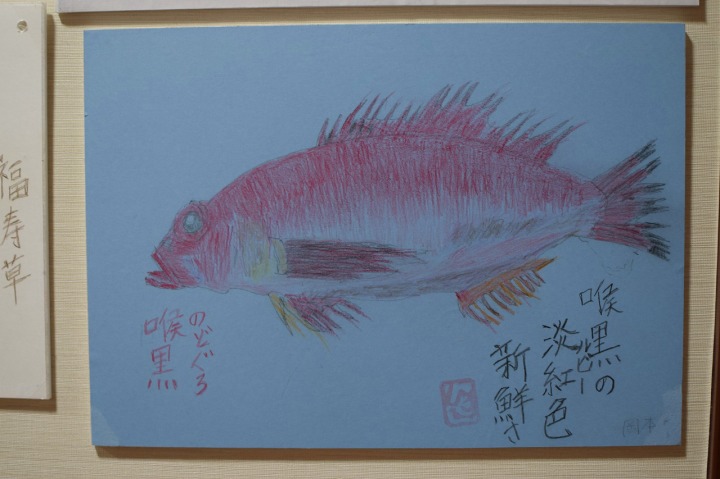 福寿草
のどぐろ
喉黒
喉黒の
淡紅色
新鮮さ
岡本